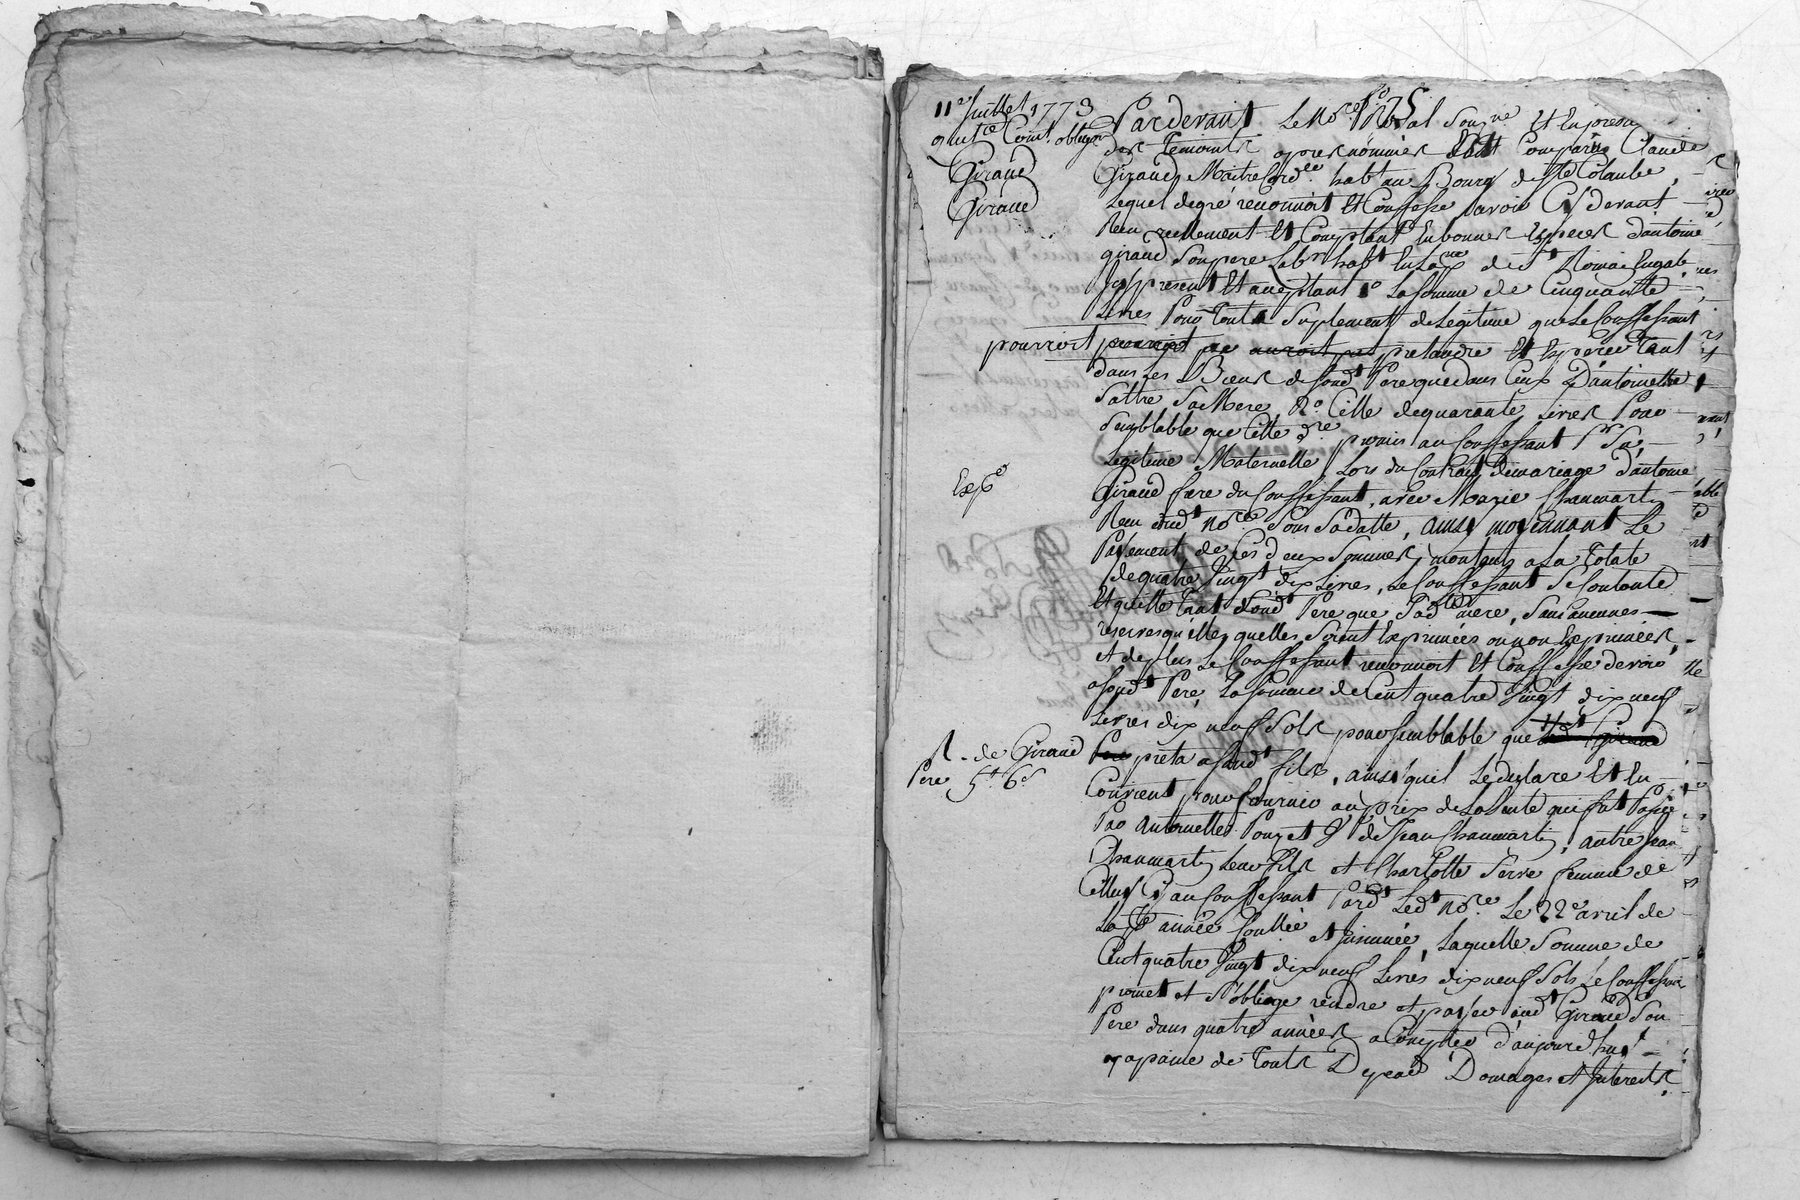 11e Juillet 1773
quitce Cont. obligon
Giraud
Giraud
Pardevant Le Nore Royal Sousné Et En presence
des Temoins apres nommés Est Comparu Claude
Giraud Maitre Cordier habt au Bourg de Ste Colombe,
Lequel de gré reconnoit Et Confesse avoir Cy devant
Reçu reellement Et Comptant En bonnes Especes d'antoine
giraud Son pere Labr habt En La psse de St Romain En gal
Icy present Et acceptant 1o La Somme de Cinquante
Livres Pour Tout Suplement de Legitime que Le Confessant
pourroit pretandre Et Esperer Tant
dans Les Biens de Sondt Pere que dans Ceux D'antoinette
Sattre Sa Mere, 2o Celle de quarante Livres Pour
Semblable que Cette dre promis au Confessant Pr Sa
Legitime Maternelle Lors du Contrat de mariage d'antoine
Giraud frere du Confessant, avec Marie Chaumartin
Expé
Reçu dudt Nore Sous Sa datte, ainsi moyennant Le
Payement de Ces deux Sommes, montant a La Totale
de quatre Vingt dix Livres, Le Confessant Se Contente
Et quitte Tant Sondt Pere que Sadte mere, Sans aucunes
reserves qu'elles quelles Soient Exprimées ou non Exprimées,
et de plus Le Confessant reconnoit Et Confesse devoir
a Sondt Pere La Somme de Cent quatre Vingt dix neuf
Livres dix neuf Sols pour Semblable que Ledt Giraud
R. de Giraud
Pere 5# 6s
Pere prêta a Sondt fils, ainsi qu'il Le declare Et En
Convient pour fournir au prix de La Vente qui fut Passée
Par Antoinette Pouzet Ve de Jean Chaumartin, autre Jean
Chaumartin Leur fils et Charlotte Serve femme de
Celluy Cy au Confessant Pardt Ledt Nore Le 22e avril de
La pte année Conllée et Insinuée, Laquelle Somme de
Cent quatre Vingt dix neuf Livres dix neuf Sols Le Confessant
promet et S'oblige rendre et payer audt Giraud Son
Pere dans quatre années a Compter d'aujourd'huy
a paine de Touts Depens Domages et Interests,